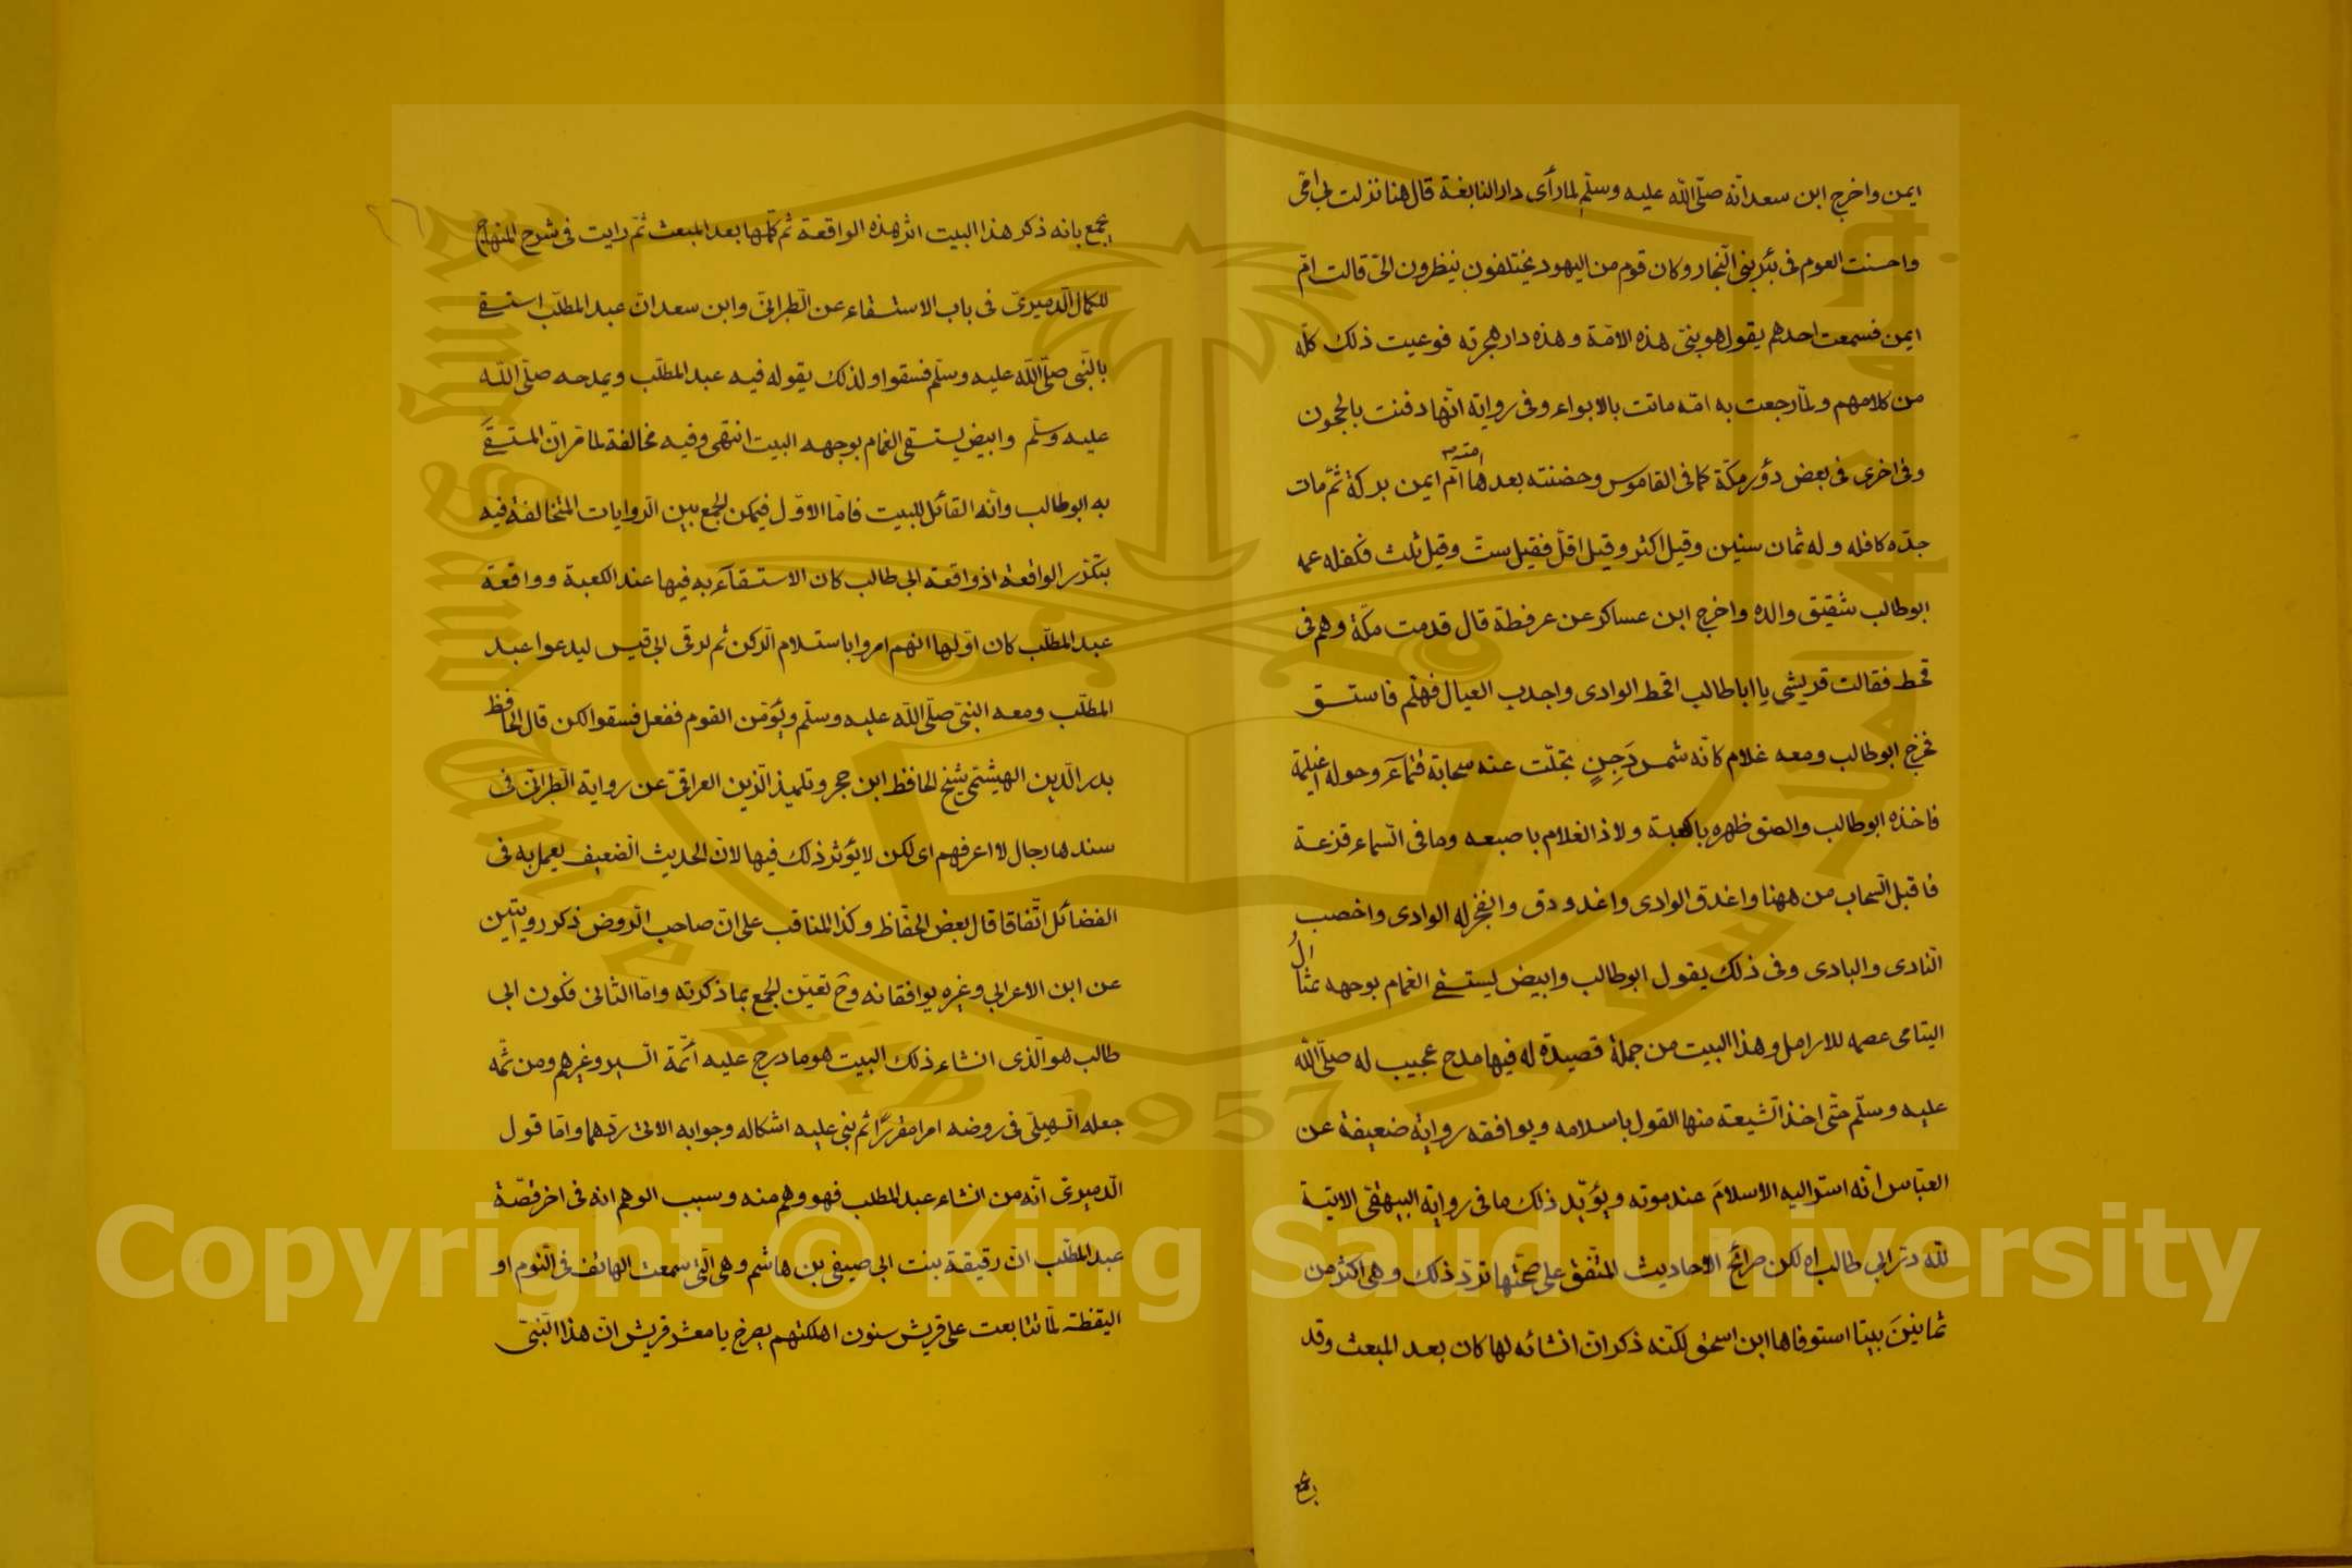 ايمن واخرج ابن سعد انّه صلّى الله عليه وسلّم لما رأى دار النابغة قال هنا نزلت بي امّى
واحسنت العوم فى بئر بنى النّجار وكان قوم من اليهود يختلفون ينظرون الىّ قالت امّ
ايمن فسمعت احدهم يقول هو بنىّ هذه الامّة وهذه دار هجرته فوعيت ذلك كلّه
من كلامهم ولمّا رجعت به امّه ماتت بالابواء وفى رواية انّها دفنت بالحجون
وفى اخرى فى بعض دؤر مكّة كما فى القاموس وحضنته بعدها امّ ايمن بركة ثمّ مات
جدّه كافله وله ثمان سنين وقيل اكثر وقيل اقلّ فقيل ستّ وقيل ثلث فكفله عمه
ابوطالب شقيق والده واخرج ابن عساكر عن عرفطة قال قدمت مكّة وهم فى
قحط فقالت قريش يا اباطالب اقحط الوادى واجدب العيال فهلم فاستسق
فخرج ابوطالب ومعه غلام كانّه شمس دَجِنٍ تجلّت عنه سحابة قتمآء وحوله اغيلمة
فاخذه ابوطالب والصق ظهره بالكعبة ولاذ الغلام باصبعه وما فى السّماء قزعة
فاقبل السّحاب من ههنا واغدق الوادى واغدودق وانفجر له الوادى واخصب
النّادى والبادى وفى ذلك يقول ابوطالب وابيض يستسقى الغمام بوجهه ثمال
اليتامى عصمه للارامل وهذا البيت من جملة قصيدة له فيها مدح عجيب له صلّى الله
عليه وسلّم حتّى اخذ الشّيعة منها القول باسلامه ويوافقه رواية ضعيفة عن
العبّاس انّه اسرّ اليه الاسلامَ عند موته ويؤيّد ذلك ما فى رواية البيهقى الاتية
للّه درّ ابى طالب اه لكن صرائح الاحاديث المتّفق على صحّتها تردّ ذلك وهى اكثر من
ثمانينَ بيتا استوفاها ابن اسحق لكنّه ذكر انّ انشائه لها كان بعد المبعث وقد
يجمع
يجمع بانه ذكر هذا البيت اثر هذه الواقعة ثم كمّلها بعد المبعث ثمّ رايت فى شرح المنهاج
للكمال الدّميرىّ فى باب الاستسقاء عن الطّبرانىّ وابن سعد انّ عبد المطلّب استسقى
بالنّبى صلّى اللّه عليه وسلّم فسقوا ولذلك يقوله فيه عبد المطلّب ويمدحه صلّى اللّه
عليه وسلّم وابيض يستسقى الغمام بوجهه البيت انتهى وفيه مخالفة لما مرّ انّ المستسقىَ
به ابوطالب وانّه القائل للبيت فامّا الاوّل فيمكن الجمع بين الرّوايات المتخالفة فيه
بتكرّر الواقعة اذ واقعة ابى طالب كان الاستسقآء به فيها عند الكعبة وواقعة
عبد المطلّب كان اوّلها انهم امروا باستلام الرّكن ثم لرقى ابى قبيس ليدعوا عبد
المطلّب ومعه النبىّ صلّى اللّه عليه وسلّم ويؤمّن القوم ففعل فسقوا لكن قال الحافظ
بدر الدّين الهيثمى شيخ الحافظ ابن حجر وتلميذ الزّين العراقىّ عن رواية الطّبرانّى فى
سندها رجال لا اعرفهم اى لكن لا يؤثر ذلك فيها لانّ الحديث الضعيف يعمل به فى
الفضائل اتّفاقا قال بعض الحفّاظ وكذا المناقب على انّ صاحب الرّوض ذكر روايتين
عن ابن الاعرابي وغيره يوافقانه وحَ تعيّن الجمع بما ذكرته وامّا الثانى فكون ابى
طالب هو الّذى انشاء ذلك البيت هو ما درج عليه أئمّة السّير وغيرهم ومن ثمّه
جعله السّهيلىّ فى روضه امرا مقررًا ثم بنى عليه اشكاله وجوابه الاتى ردّهما وامّا قول
الدّميرىّ انّه من انشاء عبد المطلب فهو وهم منه وسبب الوهم انه فى اخر قصّة
عبد المطّلب انّ رقيقة بنت ابى صيفى بن هاشم وهى الّتى سمعت الهاتف فى النّوم او
اليقظة لمّا تتابعت على قريش سنون اهلكتهم يصرخ يا معشر قريش انّ هذا النّبىّ
Copyright © King Saud University
King Saud University
1957